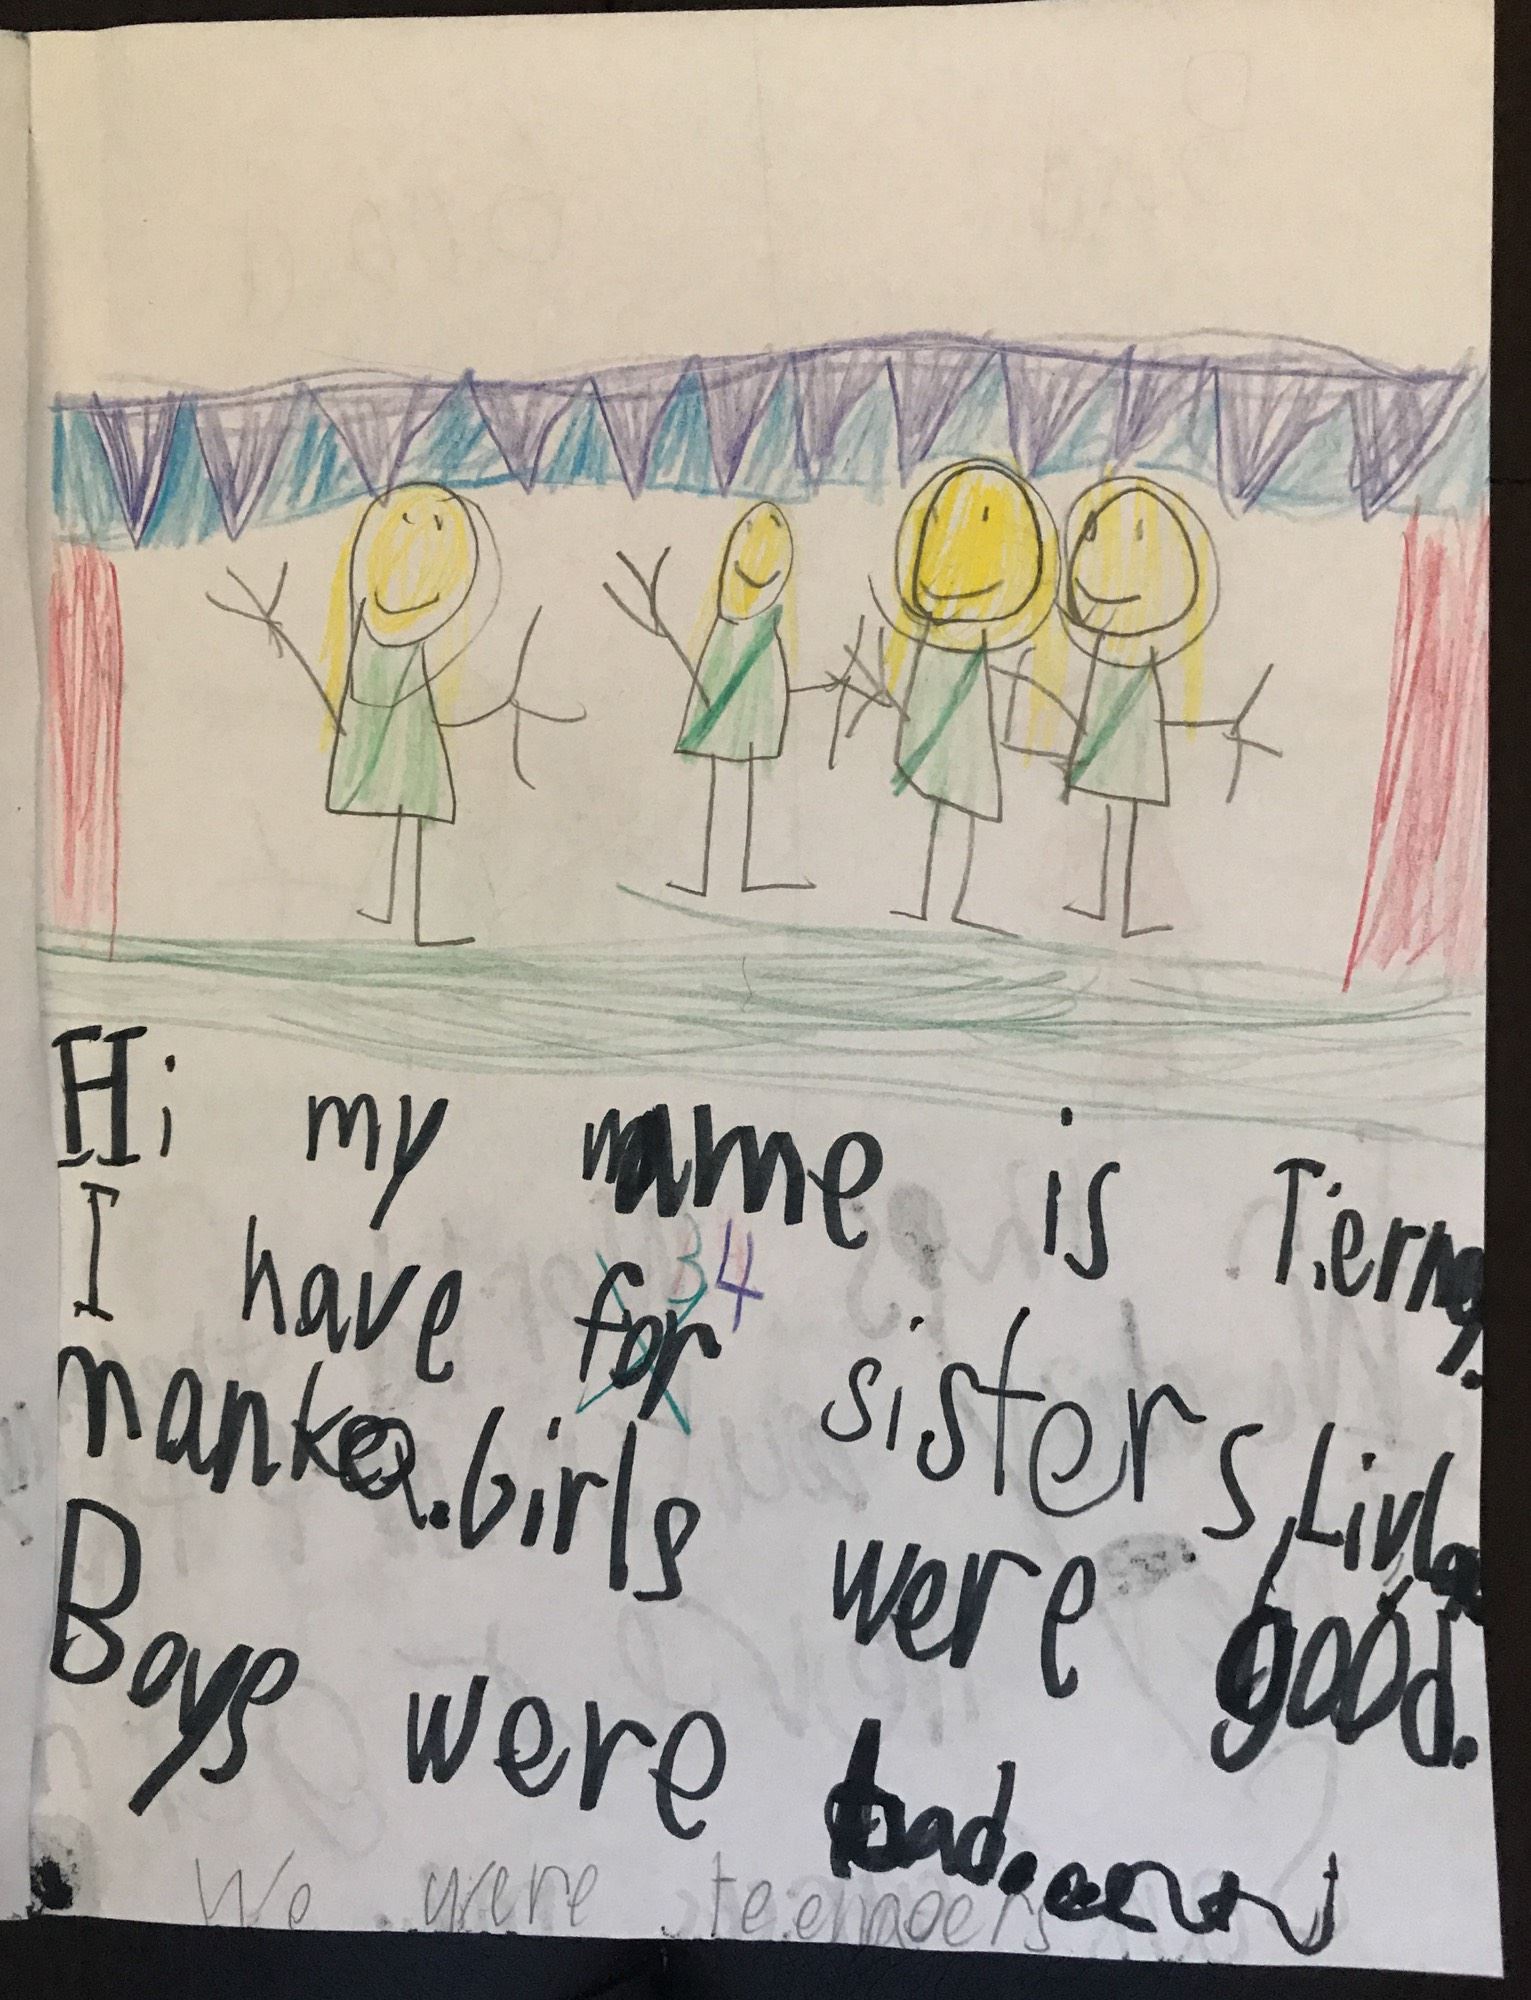 Hi my name is Tierny.
I have for 3 4 sisters, Liv,
nanko. Girls were good.
Boys were bad.
We were teenagers